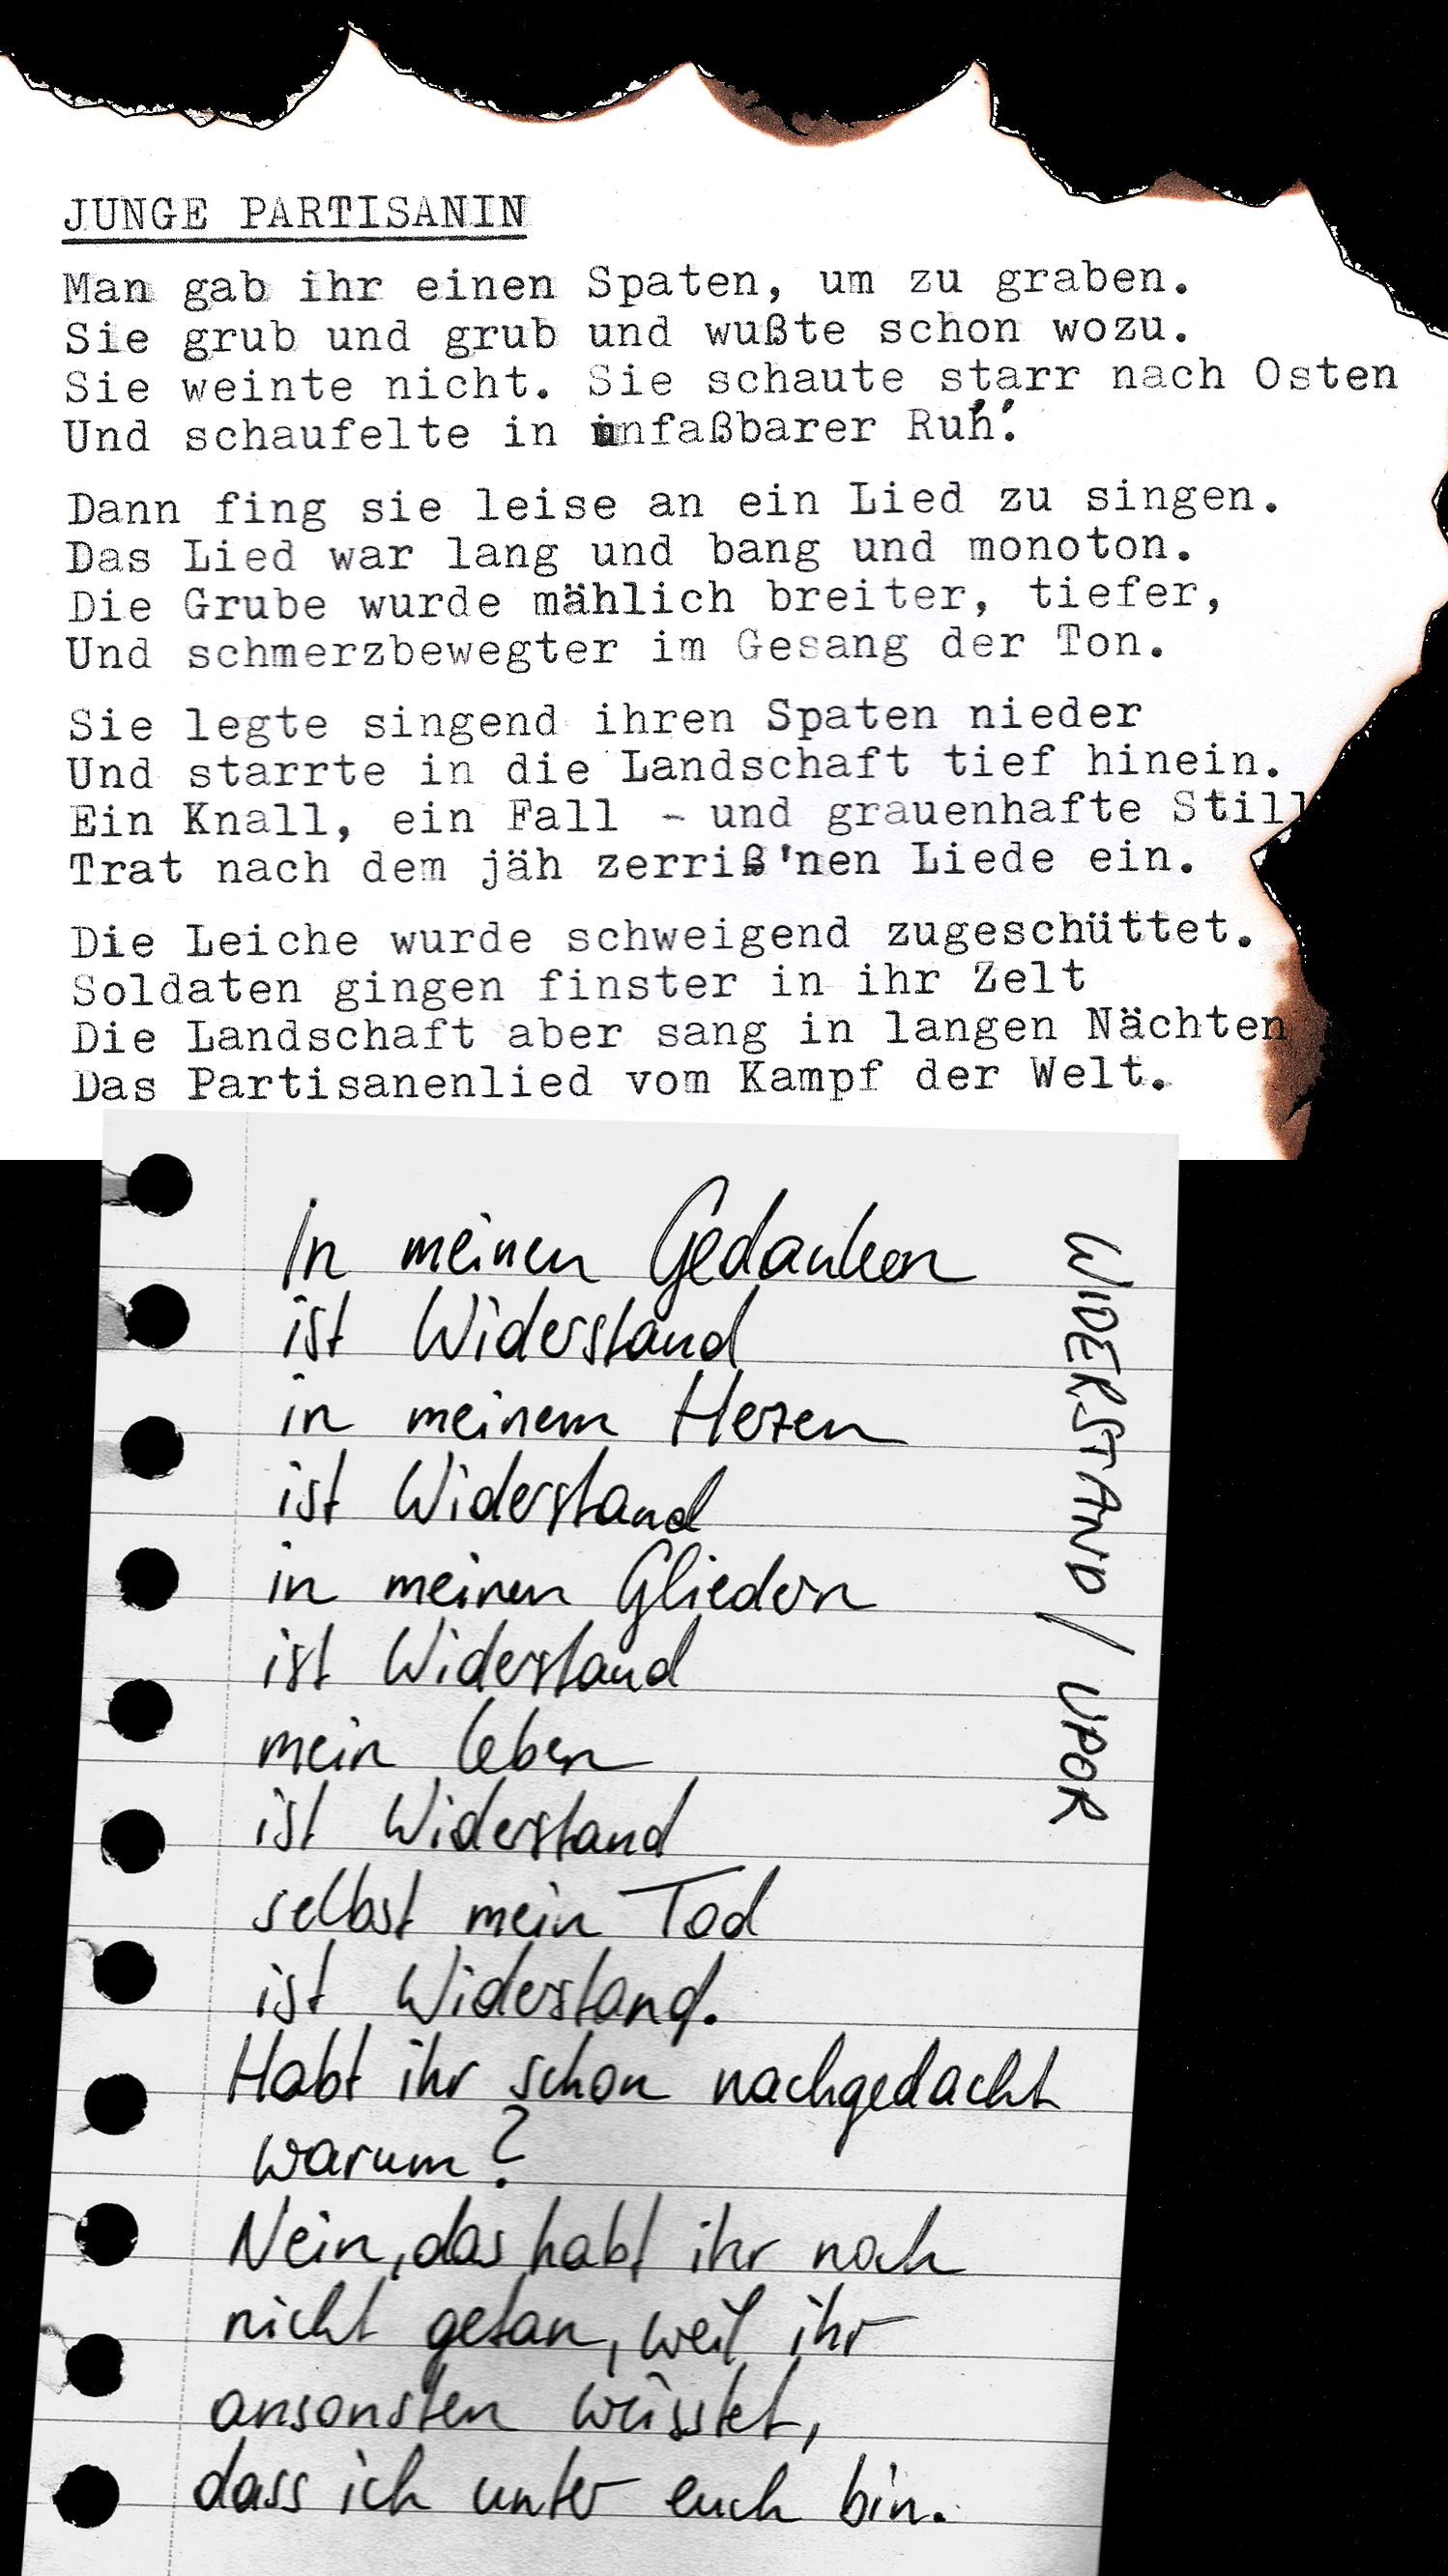 JUNGE PARTISANIN
Man gab ihr einen Spaten, um zu graben.
Sie grub und grub und wußte schon wozu.
Sie weinte nicht. Sie schaute starr nach Osten
Und schaufelte in unfaßbarer Ruh'.
Dann fing sie leise an ein Lied zu singen.
Das Lied war lang und bang und monoton.
Die Grube wurde mählich breiter, tiefer,
Und schmerzbewegter im Gesang der Ton.
Sie legte singend ihren Spaten nieder
Und starrte in die Landschaft tief hinein.
Ein Knall, ein Fall - und grauenhafte Still
Trat nach dem jäh zerriß'nen Liede ein.
Die Leiche wurde schweigend zugeschüttet.
Soldaten gingen finster in ihr Zelt
Die Landschaft aber sang in langen Nächten
Das Partisanenlied vom Kampf der Welt.
In meinen Gedanken
ist Widerstand
in meinem Herzen
ist Widerstand
in meinen Gliedern
ist Widerstand
mein Leben
ist Widerstand
selbst mein Tod
ist Widerstand.
Habt ihr schon nachgedacht
warum?
Nein, das habt ihr noch
nicht getan, weil ihr
ansonsten wüsstet,
dass ich unter euch bin.
WIDERSTAND / UPOR